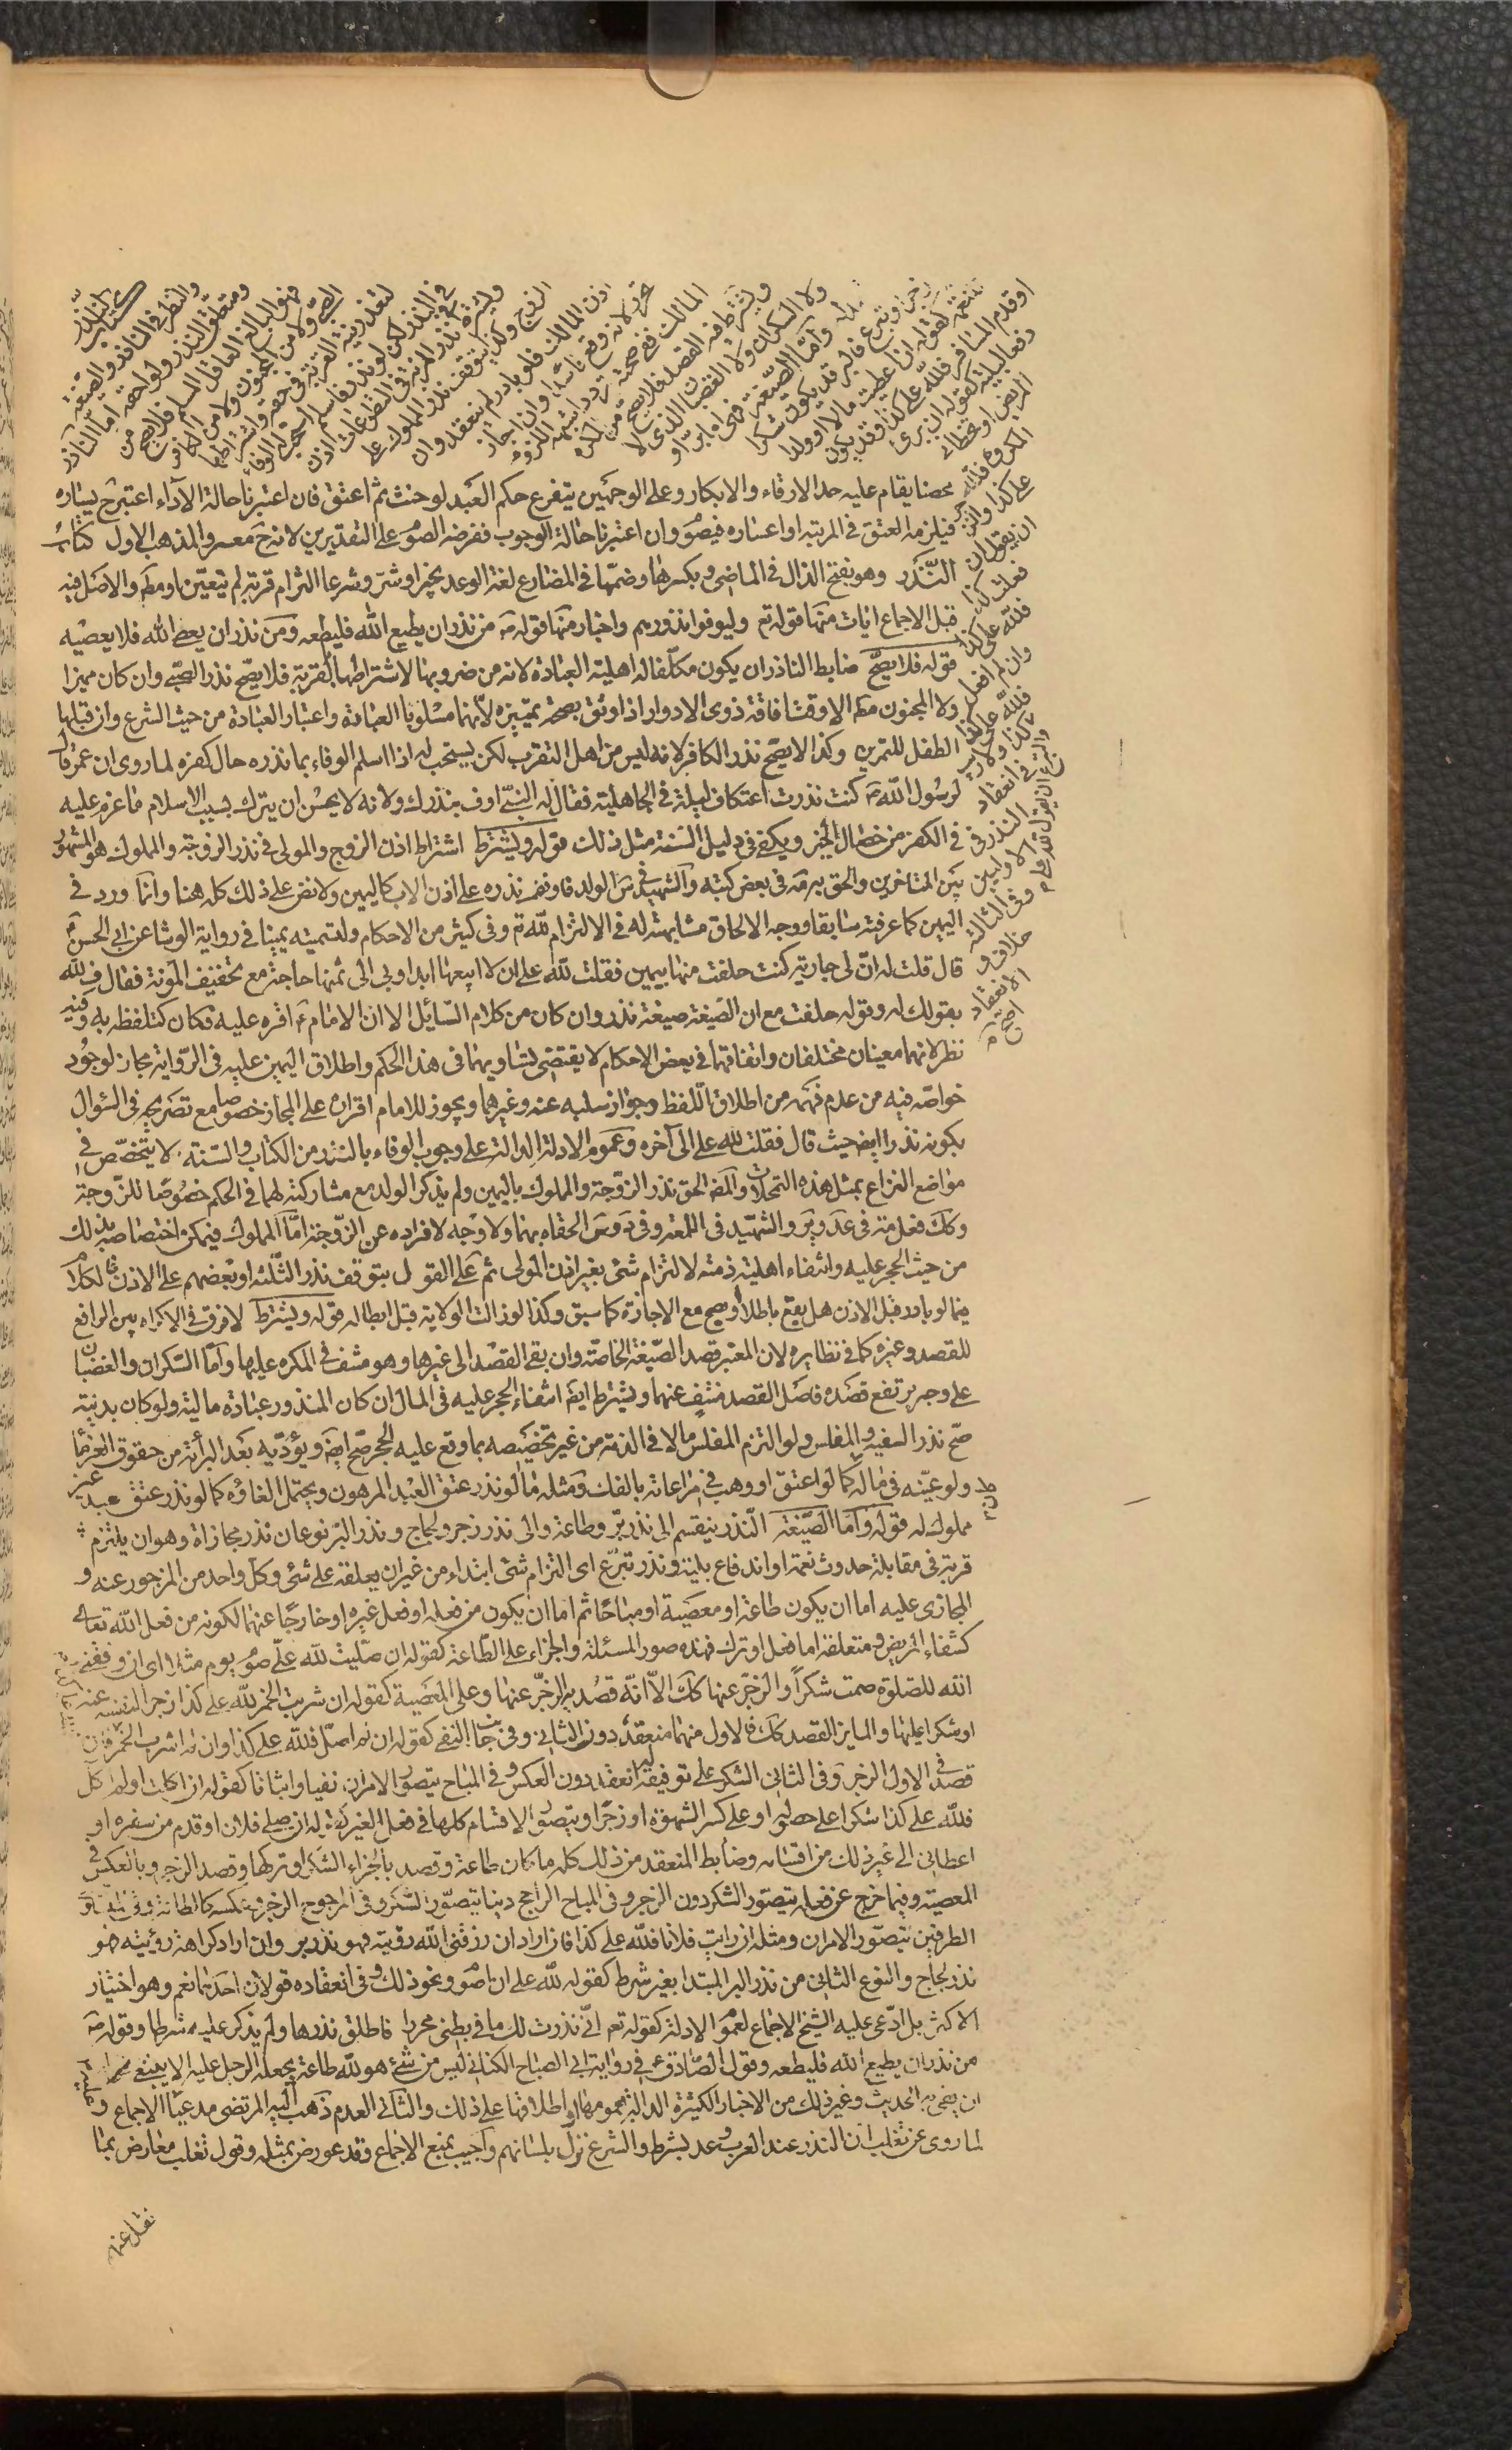 كتاب النذر
والنظر في الناذر والصيغة
ومتعلق النذر ولواحقه اما الناذر
فهو البالغ العاقل المسلم فلا يصح من
الصبي ولا من المجنون ولا من الكافر
لتعذر نية القربة في حقه واشتراطها
في النذر لكن لو نذر فاسلم استحب له الوفاء
ويشترط في نذر المرئة في التطوعات اذن
الزوج وكذا يتوقف نذر المملوك على
اذن المالك فلو بادر لم ينعقد وان
تحرر لانه وقع فاسدا وان اجاز
المالك ففي صحته تردد اشبهه اللزوم
ويشترط فيه القصد فلا يصح من المكره
ولا السكران ولا الغضبان الذي لا
واما الصيغة فهي اما بر او
زجر او تبرع فالبر قد يكون شكرا
للنعمة كقوله ان اعطيت مالا او ولدا
او قدم المسافر فلله علي كذا وقد يكون
دفعا لبلية كقوله ان برئ
المريض او تخطاني
المكروه فلله
علي كذا والزجر
ان يقول ان
فعلت كذا
فلله علي كذا
وان لم افعل
فلله علي كذا
والتبرع ان يقول لله علي
كذا ولا ريب
في انعقاد
النذر في
الاوليين
وفي الثالثة
خلاف و
الانعقاد
اصح
محصنا يقام عليه حد الارقاء والابكار وعلى الوجهين يتفرع حكم العبد لو حنث ثم اعتق فان اعتبرنا حالة الآداء اعتبرح يساره
فيلزمه العتق في المرتبه او اعساره فيصوم وان اعتبرنا حالة الوجوب ففرضه الصوم على التقديرين لانه ح معسر والمذهب الاول كتاب
النّذر وهو بفتح الذال في الماضي وبكسرها وضمّها في المضارع لغة الوعد بخير او شر وشرعا التزام قربة لم تتعيّن او مطم والاصل فيه
قبل الاجماع ايات منها قوله تع وليوفوا نذورهم واخبار منها قوله ص من نذر ان يطيع الله فليطعه ومن نذر ان يعص الله فلا يعصيه
قوله فلا يصح ضابط الناذر ان يكون مكلفا له اهلية العبادة لانه من ضروبها لاشتراطها بالقربة فلا يصح نذر الصبي وان كان مميزا
ولا المجنون مطم الا وقت افاقة ذوي الادوار اذا وثق بصحة تميزه لانهما مسلوبا العبادة واعتبار العبادة من حيث الشرع وان قبلها
الطفل للتمرين وكذا لا يصح نذر الكافر لانه ليس من اهل التقرب لكن يستحب له اذا اسلم الوفاء بما نذره حال كفره لما روى ان عمر قال
لرسول الله ص كنت نذرت اعتكاف ليلة في الجاهلية فقال له النبي اوف بنذرك ولانه لا يحسن ان يترك بسبب الاسلام ما عزم عليه
في الكفر من خصال الخير ويكفي في دليل السنة مثل ذلك قوله ويشترط اشتراط اذن الزوج والمولى في نذر الزوجة والمملوك هو المشهور
بين المتاخرين والحق به في بعض كتبه والشهيد في س الولد فاوقف نذره على اذن الاب كاليمين ولا نص على ذلك كله هنا وانما ورد في
اليمين كما عرفته سابقا ووجه الالحاق مشابهته له في الالتزام لله تع وفي كثير من الاحكام ولتسميته يمينا في رواية الوشا عن ابي الحسن ع
قال قلت له ان لي جارية كنت حلفت منها بيمين فقلت لله علي ان لا ابيعها ابدا وبي الى ثمنها حاجة مع تخفيف المؤنة فقال ف لله
بقولك له وقوله حلفت مع ان الصيغة صيغة نذر وان كان من كلام السائل الا ان الامام ع اقره عليه فكان كتلفظه به وفيه
نظر لانهما معينان مختلفان واتفاقهما في بعض الاحكام لا يقتضي تساويهما في هذا الحكم واطلاق اليمين عليه في الرواية مجاز لوجود
خواصه فيه من عدم فهمه من اطلاق اللفظ وجواز سلبه عنه وغيرهما ويجوز للامام اقراره على المجاز خصوصا مع تصريحه في السؤال
بكونه نذرا ايض حيث قال فقلت لله علي الى آخره وعموم الادلة الدالة على وجوب الوفاء بالنذر من الكتاب والسنة لا يتخصص في
مواضع النزاع بمثل هذه التمحلات والمصم الحق نذر الزوجة والمملوك باليمين ولم يذكر الولد مع مشاركته لهما في الحكم خصوصا للزوجة
وكك فعل مة في عد ير والشهيد في اللمعة وفي س الحقاه بهما ولا وجه لافراده عن الزوجة اما المملوك فيمكن اختصاصه بذلك
من حيث الحجر عليه وانتفاء اهلية ذمته لالتزام شئ بغير اذن المولى ثم على القول بتوقف نذر الثلثة او بعضهم على الاذن
فيما لو بادر قبل الاذن هل يقع باطلا او يصح مع الاجازة كما سبق وكذا لو زالت الولاية قبل ابطاله قوله ويشترط لا فرق في الاكراه بين الرافع
للقصد وغيره كما في نظايره لان المعتبر قصد الصيغة الخاصة وان بقي القصد الى غيرها وهو منتف في المكره عليها واما السكران والغضبان
على وجه يرتفع قصده فاصل القصد منتف عنهما ويشترط ايض انتفاء الحجر عليه في المال ان كان المنذور عبادة مالية ولو كان بدنية
صح نذر السفيه والمفلس ولو التزم المفلس مالا في الذمة من غير تخصيصه بما وقع عليه الحجر صح ايض ويؤديه بعد البرأة من حقوق الغرما
ولو عيّنه في ماله كما لو اعتق او وهب في مراعاته بالفك ومثله ما لو نذر عتق العبد المرهون ويحتمل الغاؤه كما لو نذر عتق عبد غير
مملوك له قوله واما الصيغة النذر ينقسم الى نذر بر وطاعة والى نذر زجر ولجاج ونذر البر نوعان نذر مجازاة وهو ان يلتزم
قربة في مقابلة حدوث نعمة او اندفاع بلية ونذر تبرع اي التزام شئ ابتداء من غير ان يعلقه على شئ وكل واحد من المزجور عنه و
المجازى عليه اما ان يكون طاعة او معصية او مباحا ثم اما ان يكون من فعله او فعل غيره او خارجا عنهما لكونه من فعل الله تعالى
كشفاء المريض ومتعلقه اما فعل او ترك فهذه صور المسئلة والجزاء على الطاعة كقوله ان صليت لله علي صوم يوم مثلا اي ان وفقني
الله للصلوة صمت شكراً والزجر عنها كك الا انه قصد به الزجر عنها وعلى المعصية كقوله ان شربت الخمر لله علي كذا زجرا لنفسه عنه
او شكرا عليها والمايز القصد كك فالاول منهما منعقد دون الثاني وفي جانب النفي كقوله ان لم اصل فلله علي كذا وان لم اشرب الخمر فان
قصد في الاول الزجر وفي الثاني الشكر على توفيقه له انعقد دون العكس وفي المباح يتصور الامران نفيا واثباتا كقوله ان اكلت او لم اكل
فلله علي كذا شكرا على حصوله او على كسر الشهوة او زجرا ويتصور الاقسام كلها في فعل الغير كقوله ان صلى فلان او قدم من سفره او
اعطاني الى غير ذلك من اقسامه وضابط المنعقد من ذلك كله ما كان طاعة وقصد بالجزاء الشكر او تركها وقصد الزجر وبالعكس في
المعصية وفيما خرج عن فعله يتصور الشكر دون الزجر وفي المباح الراجح دينا يتصور الشكر وفي المرجوح الزجر وعكسه كالطاعة وفي المتساوي
الطرفين يتصور الامران ومثله ان رايت فلانا فلله علي كذا فان اراد ان رزقني الله رؤيته فهو نذر بر وان اراد كراهة رؤيته فهو
نذر لجاج والنوع الثاني من نذر البر المبتدا بغير شرط كقوله لله علي ان اصوم ونحو ذلك وفي انعقاده قولان احدهما نعم وهو اختيار
الاكثر بل ادّعى عليه الشيخ الاجماع لعموم الادلة كقوله تعم اني نذرت لك ما في بطني محررا فاطلق نذرها ولم يذكر عليه شرطا وقوله ص
من نذر ان يطيع الله فليطعه وقول الصادق ع في رواية ابي الصباح الكناني ليس من شئ هو لله طاعة يجعله الرجل عليه الا ينبغي له
ان يفي به الحديث وغير ذلك من الاخبار الكثيرة الدالة بعمومها او اطلاقها على ذلك والثاني العدم ذهب اليه المرتضى مدعيا الاجماع و
لما روى عن ثعلب ان النذر عند العرب وعد بشرط والشرع نزل بلسانهم واجيب بمنع الاجماع وقد عورض بمثله وقول ثعلب معارض بما
نقل عنهم